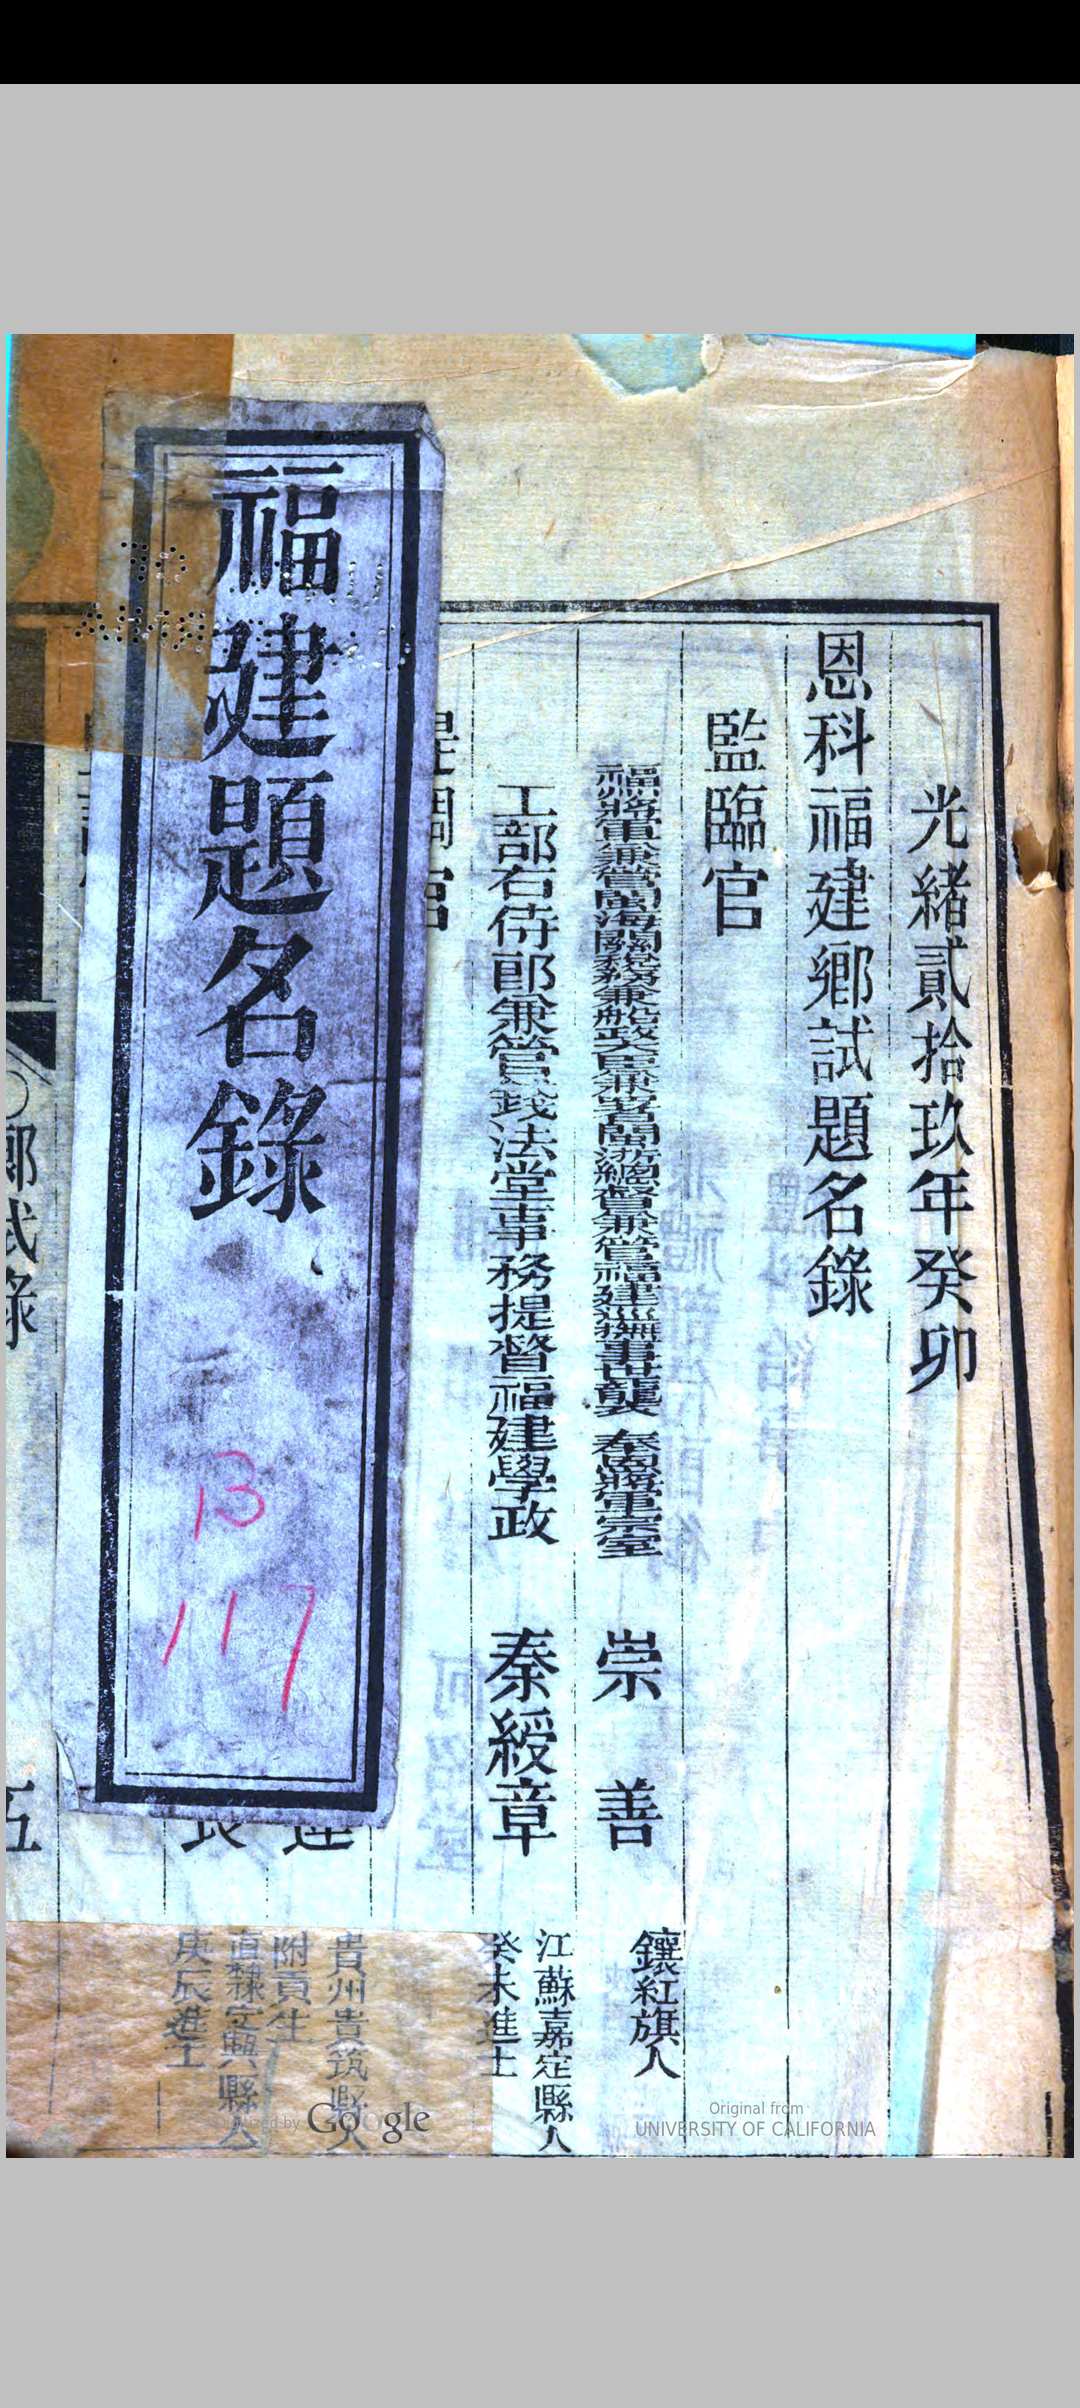 光緒貳拾玖年癸卯
恩科福建鄉試題名錄
監臨官
福州將軍兼管閩海關稅務兼船政大臣兼署閩浙總督兼管福建巡撫事世襲 奉恩將軍宗室 崇 善 鑲紅旗人
工部右侍郎兼管錢法堂事務提督福建學政 秦綬章 江蘇嘉定縣人
癸未進士
福建題名錄
13
117
貴州貴筑縣人
附貢生
直隸定興縣人
庚辰進士
鄉試錄
五
Digitized by Google
Original from
UNIVERSITY OF CALIFORNIA